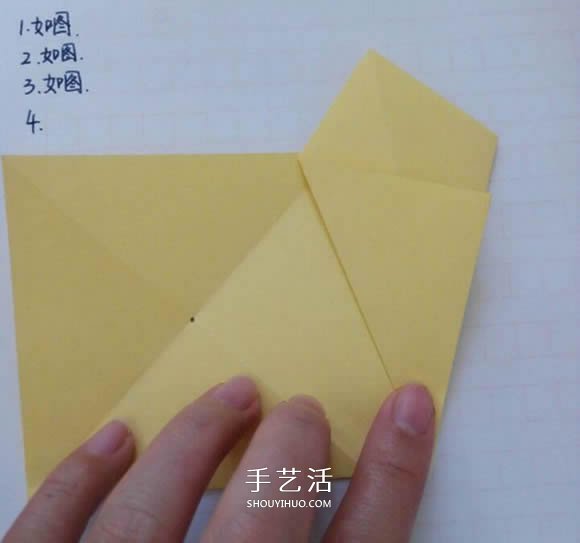 1.如图.
2.如图.
3.如图.
4.
手艺活
SHOUYIHUO.COM